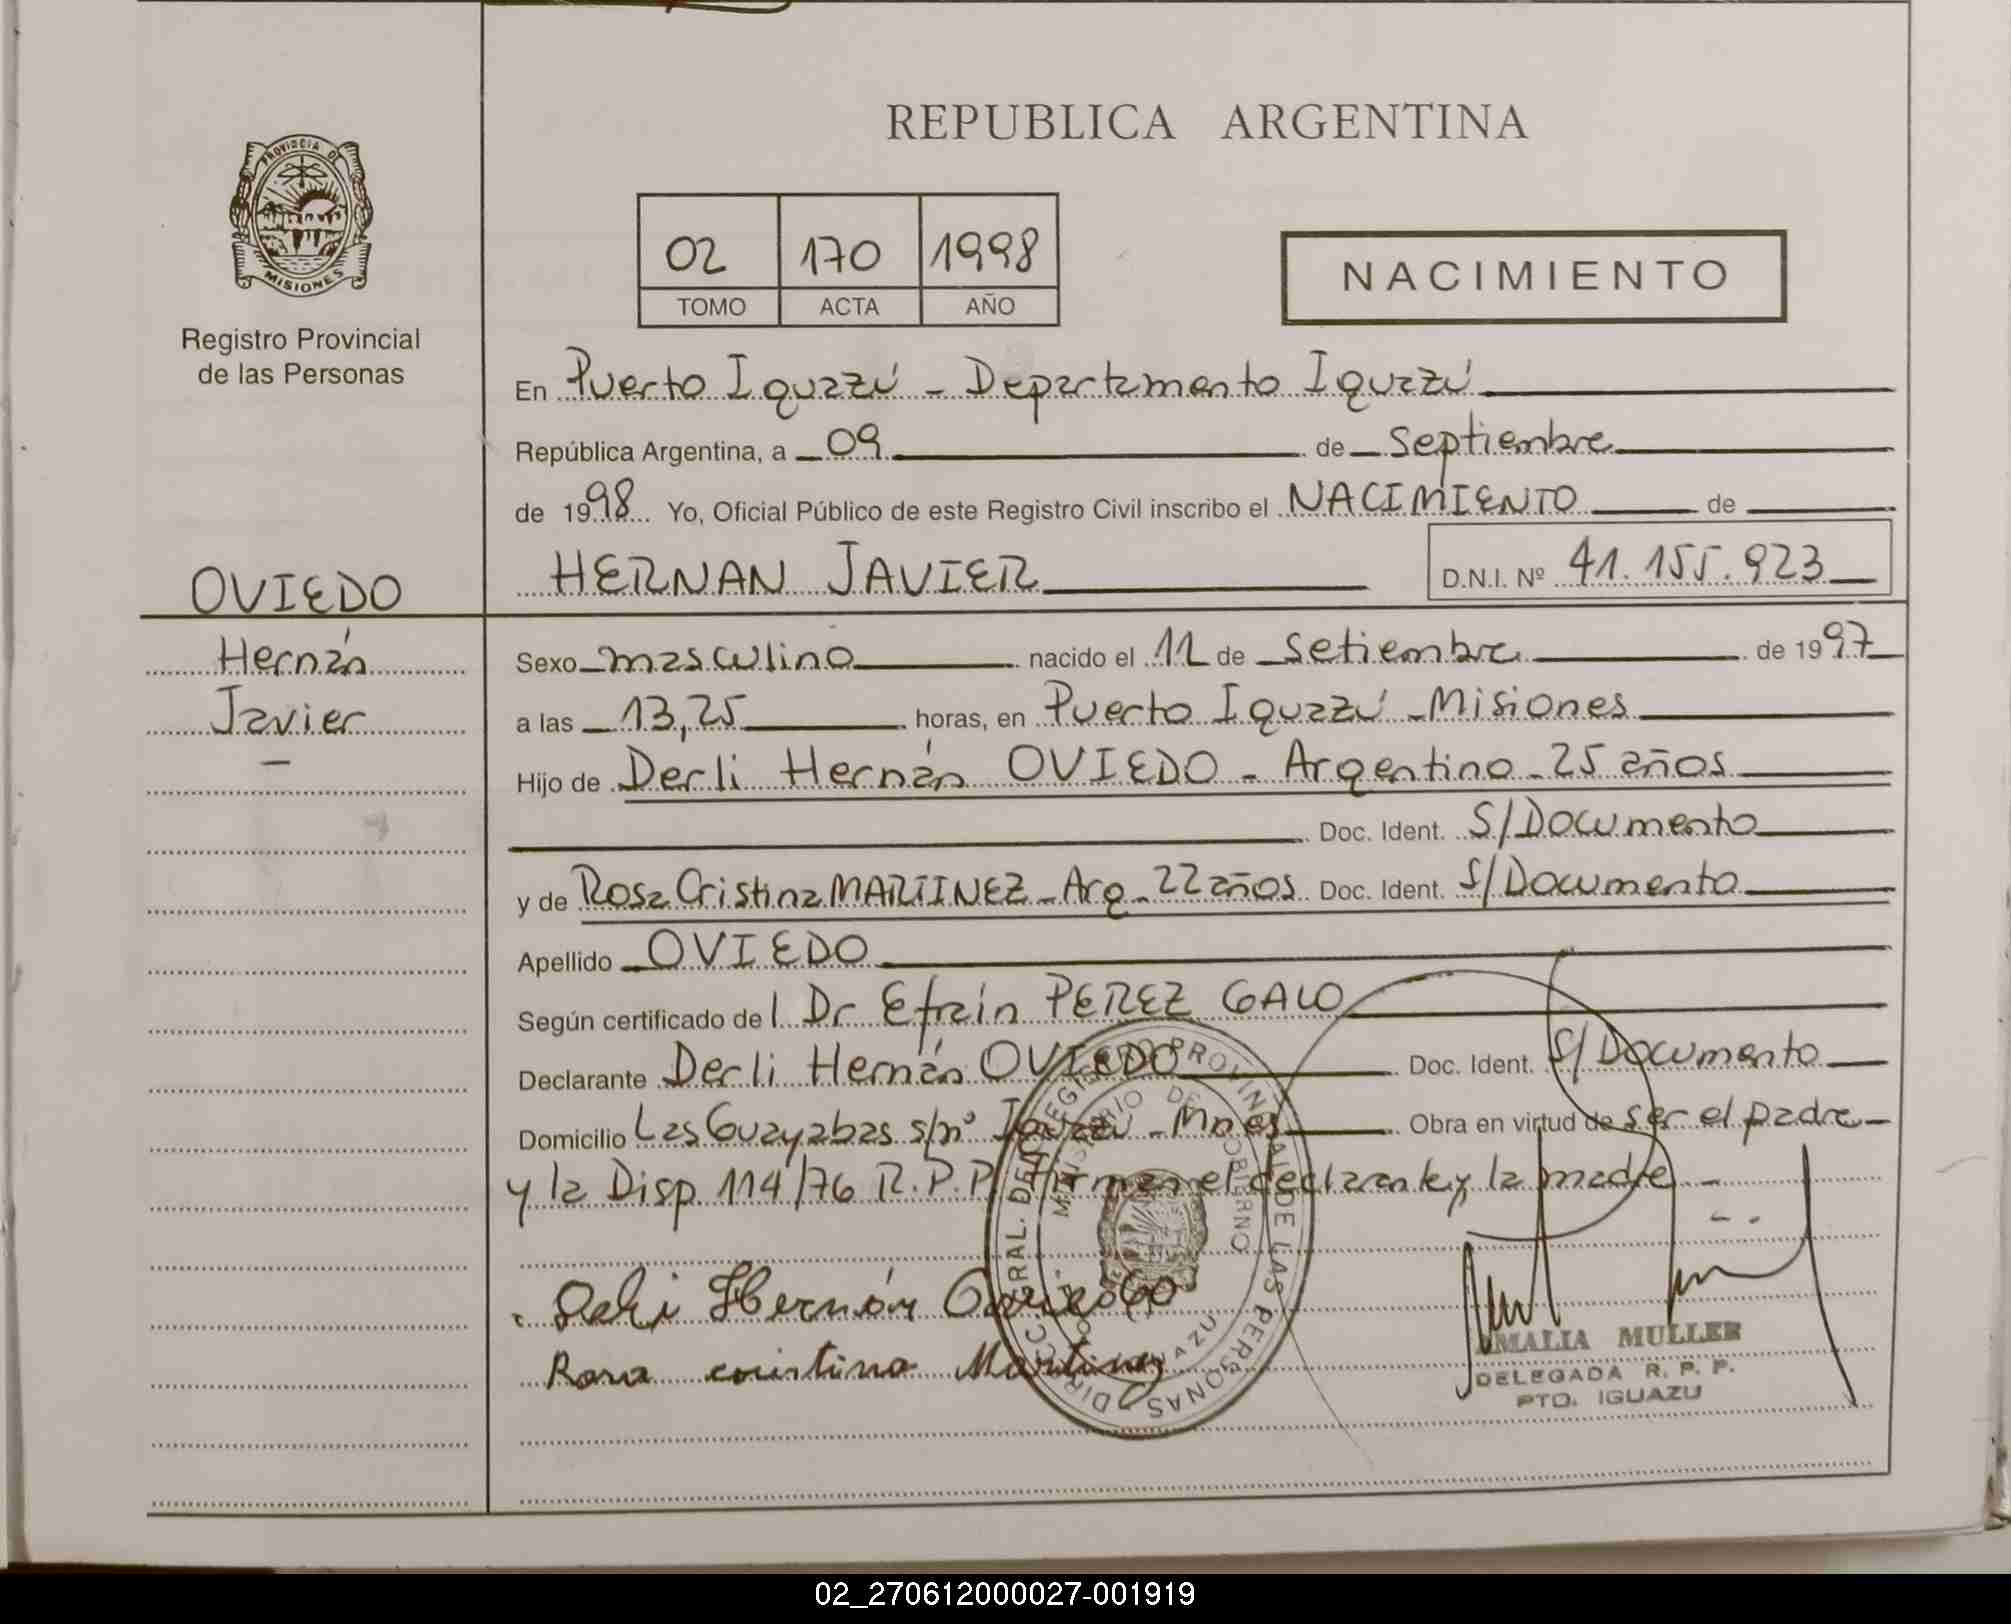 REPUBLICA ARGENTINA
PROVINCIA DE
MISIONES
Registro Provincial
de las Personas
02 170 1998
TOMO ACTA AÑO
NACIMIENTO
En Puerto Iguazú - Departamento Iguazú
República Argentina, a 09 de Septiembre
de 1998 Yo, Oficial Público de este Registro Civil inscribo el NACIMIENTO de
HERNAN JAVIER D.N.I. Nº 41.155.923
OVIEDO
Hernán
Javier
Sexo masculino nacido el 11 de setiembre de 1997
a las 13,25 horas, en Puerto Iguazú - Misiones
Hijo de Derli Hernán OVIEDO - Argentino - 25 años
Doc. Ident. S/Documento
y de Rosa Cristina MARTINEZ - Arg - 22 años Doc. Ident. S/Documento
Apellido OVIEDO
Según certificado del Dr Efraín PEREZ GALO
Declarante Derli Hernán OVIEDO Doc. Ident. S/Documento
Domicilio Las Guayabas s/nº Iguazú - Mnes Obra en virtud de ser el padre
y la Disp 114/76 R.P.P. firman el declarante y la madre
Derli Hernán Oviedo
Rosa cristina Martinez
DIRECC. GRAL. DEL REGISTRO PROVINCIAL DE LAS PERSONAS
MINISTERIO DE GOBIERNO
AMALIA MULLER
DELEGADA R. P. P.
PTO. IGUAZU
02_270612000027-001919